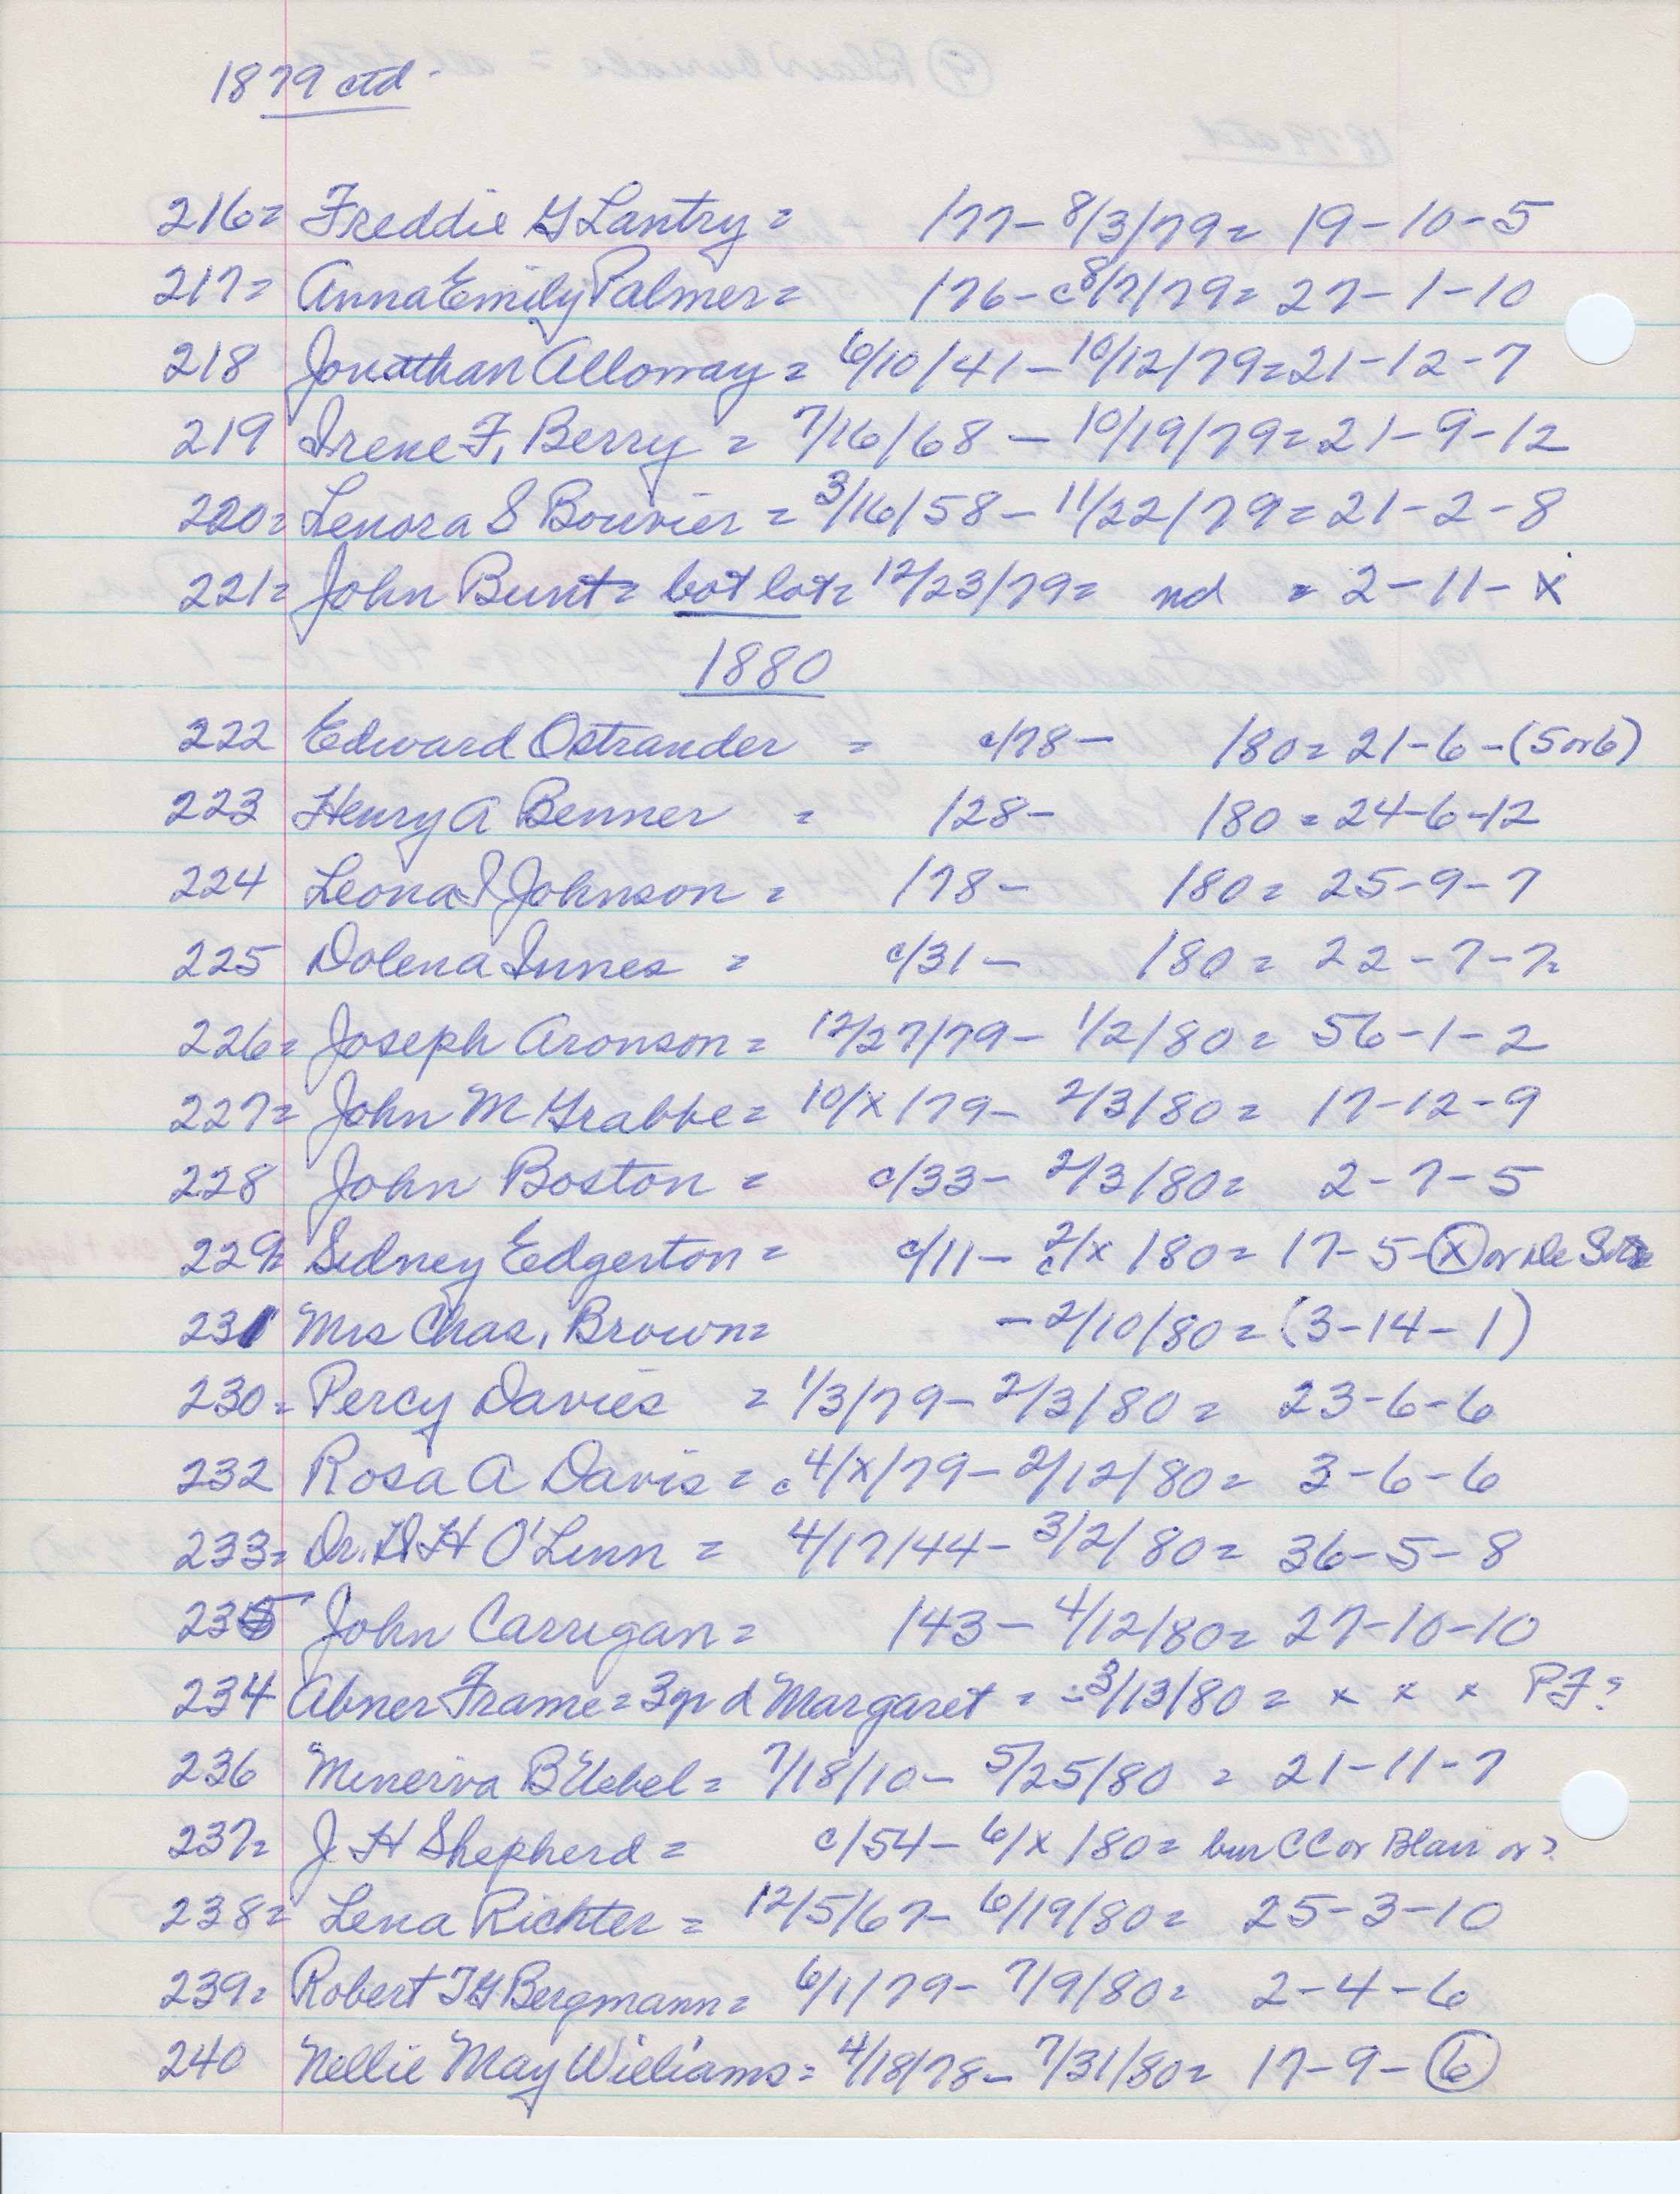 1879 ctd -
216= Freddie G Lantry = /77- 8/3/79= 19-10-5
217= Anna Emily Palmer= /76- c8/7/79= 27-1-10
218 Jonathan Alloway= 6/10/41- 10/12/79=21-12-7
219 Irene F. Berry = 7/16/68 - 10/19/79=21-9-12
220= Lenora S Bouvier = 3/16/58- 11/22/79=21-2-8
221= John Bunt= bot lot= 12/23/79= nd = 2-11-x
1880
222 Edward Ostrander = c/78- /80= 21-6-(5 or 6)
223 Henry A Benner = /28- /80 = 24-6-12
224 Leona S Johnson = /78- /80= 25-9-7
225 Dolena Innes = c/31- /80= 22-7-7=
226= Joseph Aronson = 12/27/79- 1/2/80= 56-1-2
227= John M Grabbe= 10/x/79- 2/3/80= 17-12-9
228 John Boston = c/33- 2/3/80= 2-7-5
229= Sidney Edgerton= c/11- c2/x/80= 17-5-x or De
231 Mrs Chas. Brown= -2/10/80= (3-14-1)
230= Percy Davies = 1/3/79- 2/3/80= 23-6-6
232 Rosa A Davis = c4/x/79- 2/12/80= 3-6-6
233= Dr. D H O'Linn = 4/17/44- 3/2/80= 36-5-8
235 John Carrigan= /43- 4/12/80= 27-10-10
234 Abner Frame=3p d Margaret = -3/13/80= x x x PF?
236 Minerva B Uebel= 7/18/10- 5/25/80 = 21-11-7
237= J H Shepherd = c/54- 6/x/80= bur CC or Blair or?
238= Lena Richter = 12/5/67- 6/19/80= 25-3-10
239= Robert TG Bergmann= 6/1/79- 7/9/80= 2-4-6
240 Nellie May Williams= 4/18/78- 7/31/80= 17-9-6